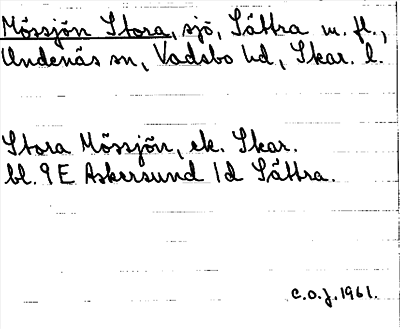 Mössjön Stora, sjö, Sättra m. fl.,
Undenäs sn, Vadsbo hd, Skar. l.
Stora Mössjön, ek. Skar.
bl. 9E Askersund 1d Sättra.
C.O.J. 1961.